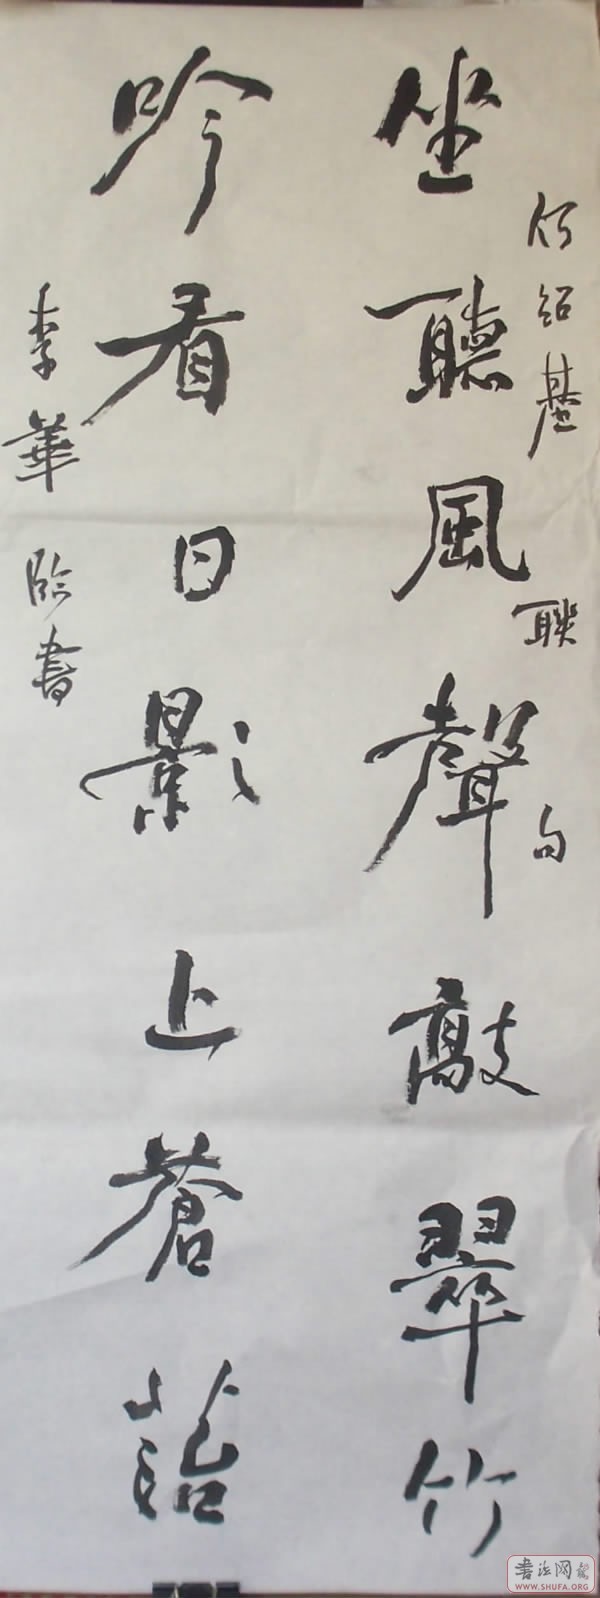 何绍基联句
坐聽風聲敲翠竹
吟看日影上蒼菭
李華臨書
書法网
WWW.SHUFA.ORG